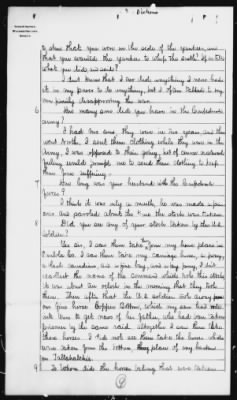 Dickens
to show that you were on the side of the Yankees, and
that you wanted the Yankees to whip the South? If so state
what you did, or said?
I don't know that I ever did anything. I never had
it in my power to do anything, but I often talked to my
own family disapproving the war.
6 How many sons did you have in the Confederate
army?
I had two sons they were in two years, and they
went South. I sent them clothing while they were in the
Army. I was opposed to their going, but of course natural
feeling would prompt me to send them clothing to keep
them from suffering.
7 How long was your husband with the Confederate
forces?
I think it was only a month, he was made a prisoner
and paroled about the time the stores were taken.
8 Did you see any of your stores taken by the U.S.
Soldiers?
Yes sir, I saw them take from my home place in
Panola Co. I saw them take my carriage horse, a pony,
a fast Canadian, and a fine bay, and a bay pony. I did
recollect the name of the command which took this stock
it was about ten o'clock in the morning that they took
them. Then after that the U.S. soldiers took away from
me fine horse Copper Bottom, which my son had rode
into town to get news of his father, who had been taken
prisoner by the same raid. Altogether I saw them take
three horses. I did not see them take the horse which
were taken from the bottom, place of my husband
on Tallahatchie.
9 To whom did the horses belong that were taken